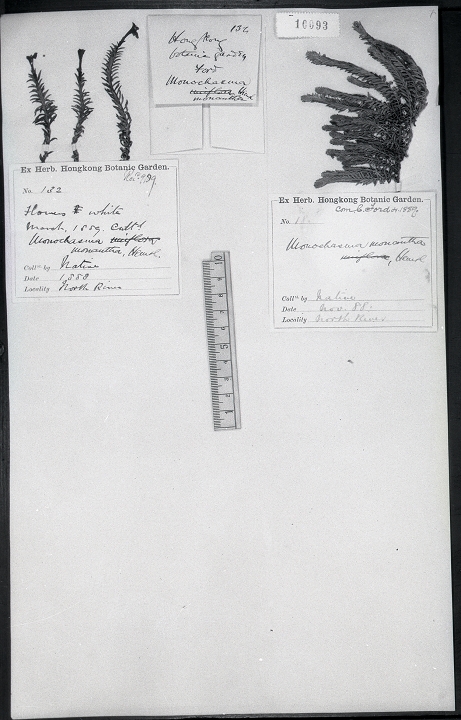 132
Hong Kong
botanic garden
Ford
Monochasma
uniflora Hemsl
monantha
10093
Ex Herb. Hongkong Botanic Garden.
Recd 9/89
No. 132
Flowers white
March, 1889. Cultd
Monochasma uniflora
monantha, Hemsl.
Colln by Native
Date 1888
Locality North River
Ex Herb. Hongkong Botanic Garden.
Com. C. Ford 1889.
No.
Monochasma monantha
uniflora, Hemsl.
Colln by Native
Date Nov. 88.
Locality North River
10
5
1